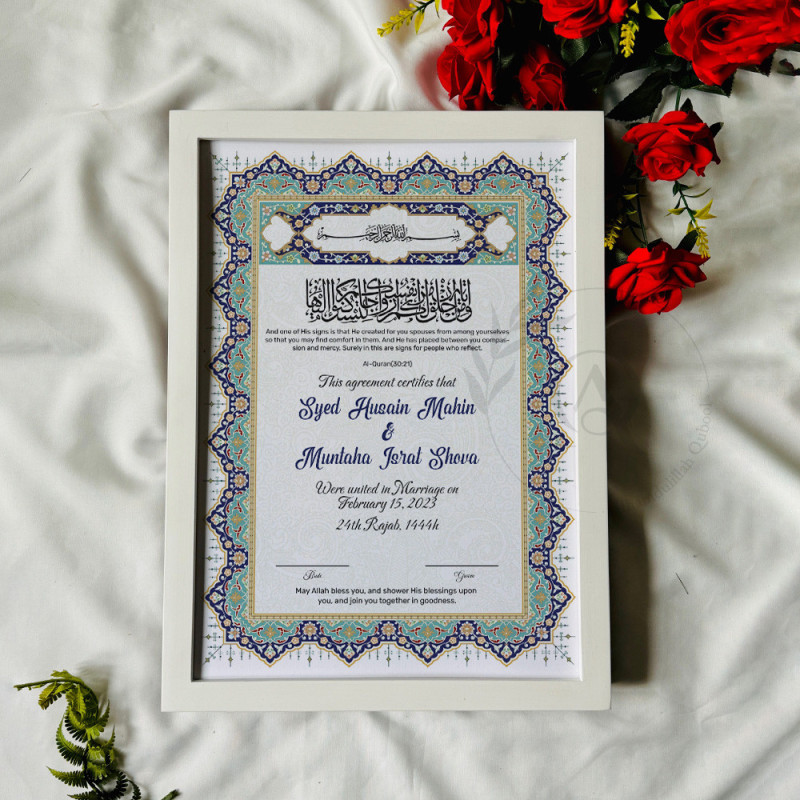 بسم الله الرحمن الرحيم
And one of His signs is that He created for you spouses from among yourselves
so that you may find comfort in them. And He has placed between you compas-
sion and mercy. Surely in this are signs for people who reflect.
Al-Quran(30:21)
This agreement certifies that
Syed Husain Mahin
&
Muntaha Israt Shova
Were united in Marriage on
February 15, 2023
24th Rajab, 1444h
May Allah bless you, and shower His blessings upon
you, and join you together in goodness.